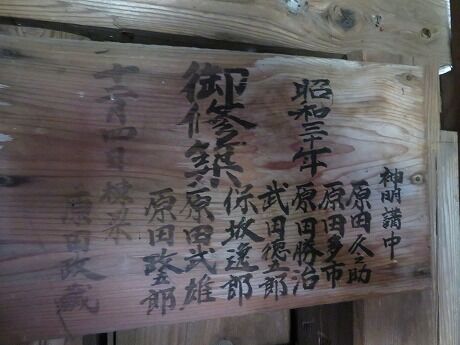 神明講中
昭和三十年
原田久之助
原田多市
原田勝治
武田徳五郎
御修築
保坂逸郎
原田武雄
原田政五郎
十二月四日棟梁
原田政蔵